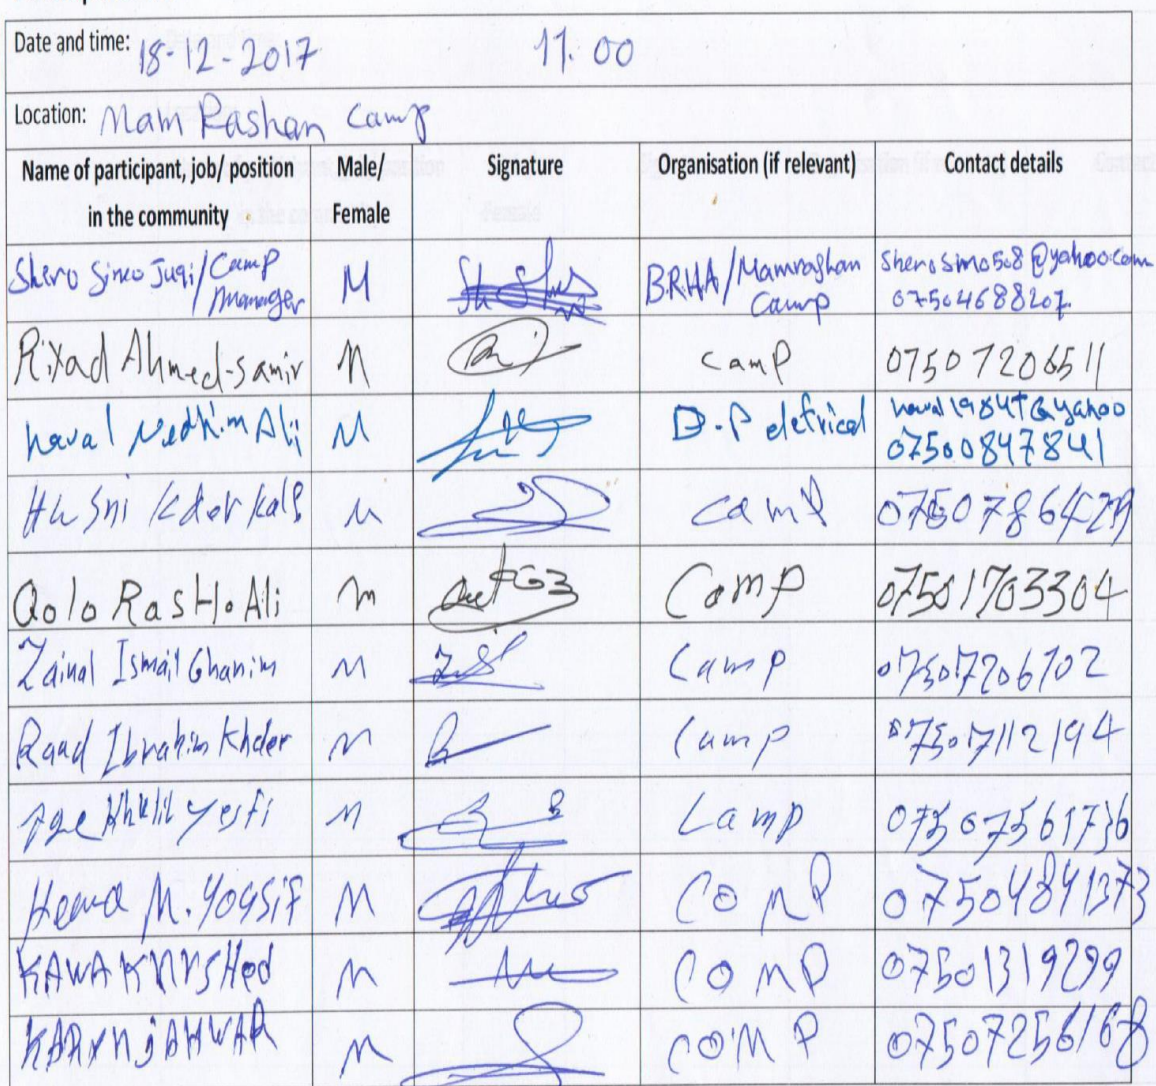 Date and time: 18-12-2017 11.00
Location: Mam Rashan Camp
Name of participant, job/ position in the community Male/ Female Signature Organisation (if relevant) Contact details
Shero Simo Juqi/Camp Manager M B.R.H.A/Mamrashan Camp Sherosimo508@yahoo.com 07504688207
Riyad Ahmed-samir M camp 07507206511
Naval Nedhim Ali M D.P 07500847841
Husni Kder M camp
Qolo RasHo Ali m Comp 07501703304
Zainal Ismail Ghanim M Camp 07507206702
Raad Ibrahim Khder M Camp 07507112194
Khalil M Camp 07507561736
M. yousif M comp 07504841373
KAWA M COMP 07501319299
M COMP 07507256168